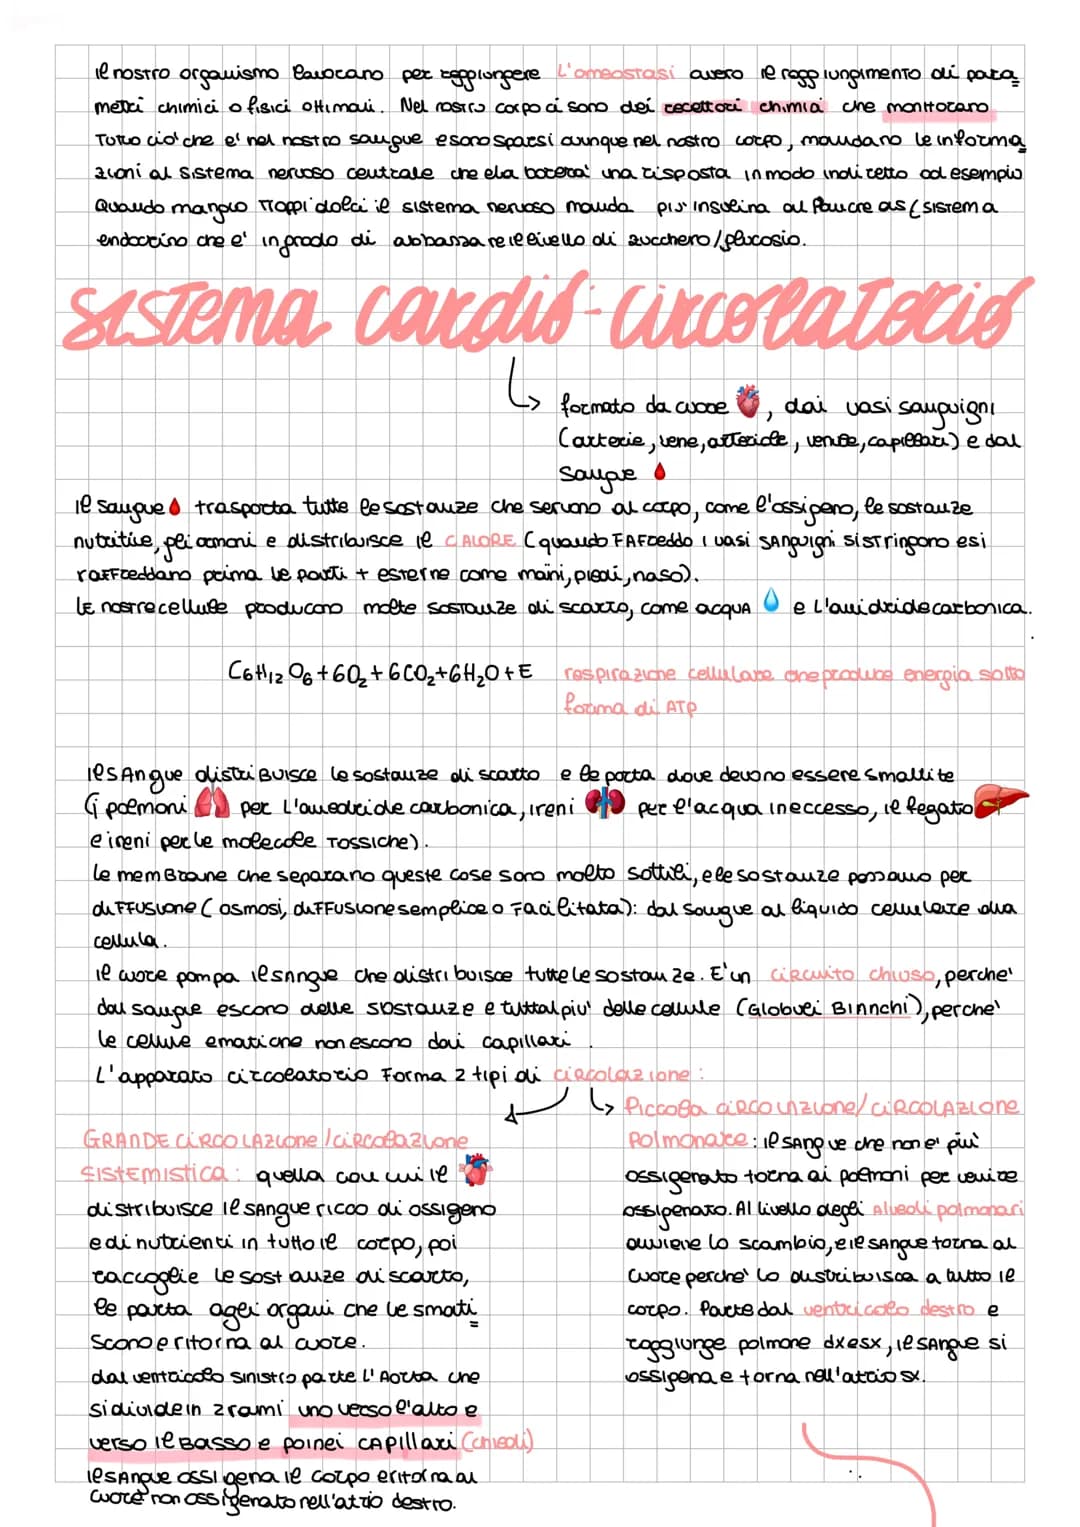 Il nostro organismo lavorano per raggiungere l'omeostasi avero il raggiungimento di para
metri chimici o fisici ottimali. Nel nostro corpo ci sono dei recettori chimici che monitorano
Tutto ciò che e' nel nostro sangue e sono sparsi ovunque nel nostro corpo, mandano le informa
zioni al sistema nervoso centrale che elaborera' una risposta in modo indiretto ad esempio
Quando mangio troppi dolci il sistema nervoso manda più insulina al pancreas (sistema
endocrino che e' in grado di abbassare il livello di zucchero/glucosio.
Sistema cardio-circolatorio
formato da cuore, dai vasi sanguigni
(arterie, vene, arteriole, venule, capillari) e dal
sangue
Il sangue trasporta tutte le sostanze che servono al corpo, come l'ossigeno, le sostanze
nutritive, gli ormoni e distribuisce il CALORE (quando FA FReddo i vasi SAnguigni si stringono e si
raffreddano prima le parti + esterne come mani, piedi, naso).
LE nostre cellule producono molte sostanze di scarto, come acqua e L'anidride carbonica.
C6H12O6+6O2+6CO2+6H2O+E respirazione cellulare che produce energia sotto
forma di ATP
Il sangue distribuisce le sostanze di scarto e le porta dove devono essere smaltite
(i polmoni per L'anedride carbonica, i reni per l'acqua in eccesso, il fegato
e i reni per le molecole tossiche).
le membrane che separano queste cose sono molto sottili, e le sostanze passano per
diffusione (osmosi, diffusione semplice o facilitata): dal sangue al liquido cellulare alla
cellula.
Il cuore pompa il sangue che distribuisce tutte le sostanze. E' un circuito chiuso, perche'
dal sangue escono delle sostanze e tuttalpiu' delle cellule (Globuli Binnchi), perche'
le cellule ematiche non escono dai capillari.
L'apparato circolatorio forma 2 tipi di circolazione:
GRANDE CIRCOLAZIONE/circolazione
SISTEMISTICA: quella con cui il
distribuisce il sangue ricco di ossigeno
e di nutrienti in tutto il corpo, poi
raccoglie le sostanze di scarto,
le porta agli organi che le smalti
scono e ritorna al cuore.
dal ventricolo sinistro parte l'Aorta che
si divide in 2 rami uno verso l'alto e
verso il basso e poi nei CAPILLARI (chiedi)
Il sangue ossigena il corpo e ritorna al
cuore non ossigenato nell'atrio destro.
Piccola CIRCOLAZIONE/CIRCOLAZIONE
Polmonare: il sangue che non e' più
ossigenato torna ai polmoni per venire
ossigenato. Al livello degli Alveoli polmonari
avviene lo scambio, e il sangue torna al
cuore perche' lo distribuisca a tutto il
corpo. Parte dal ventricolo destro e
raggiunge polmone dx e sx, il sangue si
ossigena e torna nell'atrio sx.